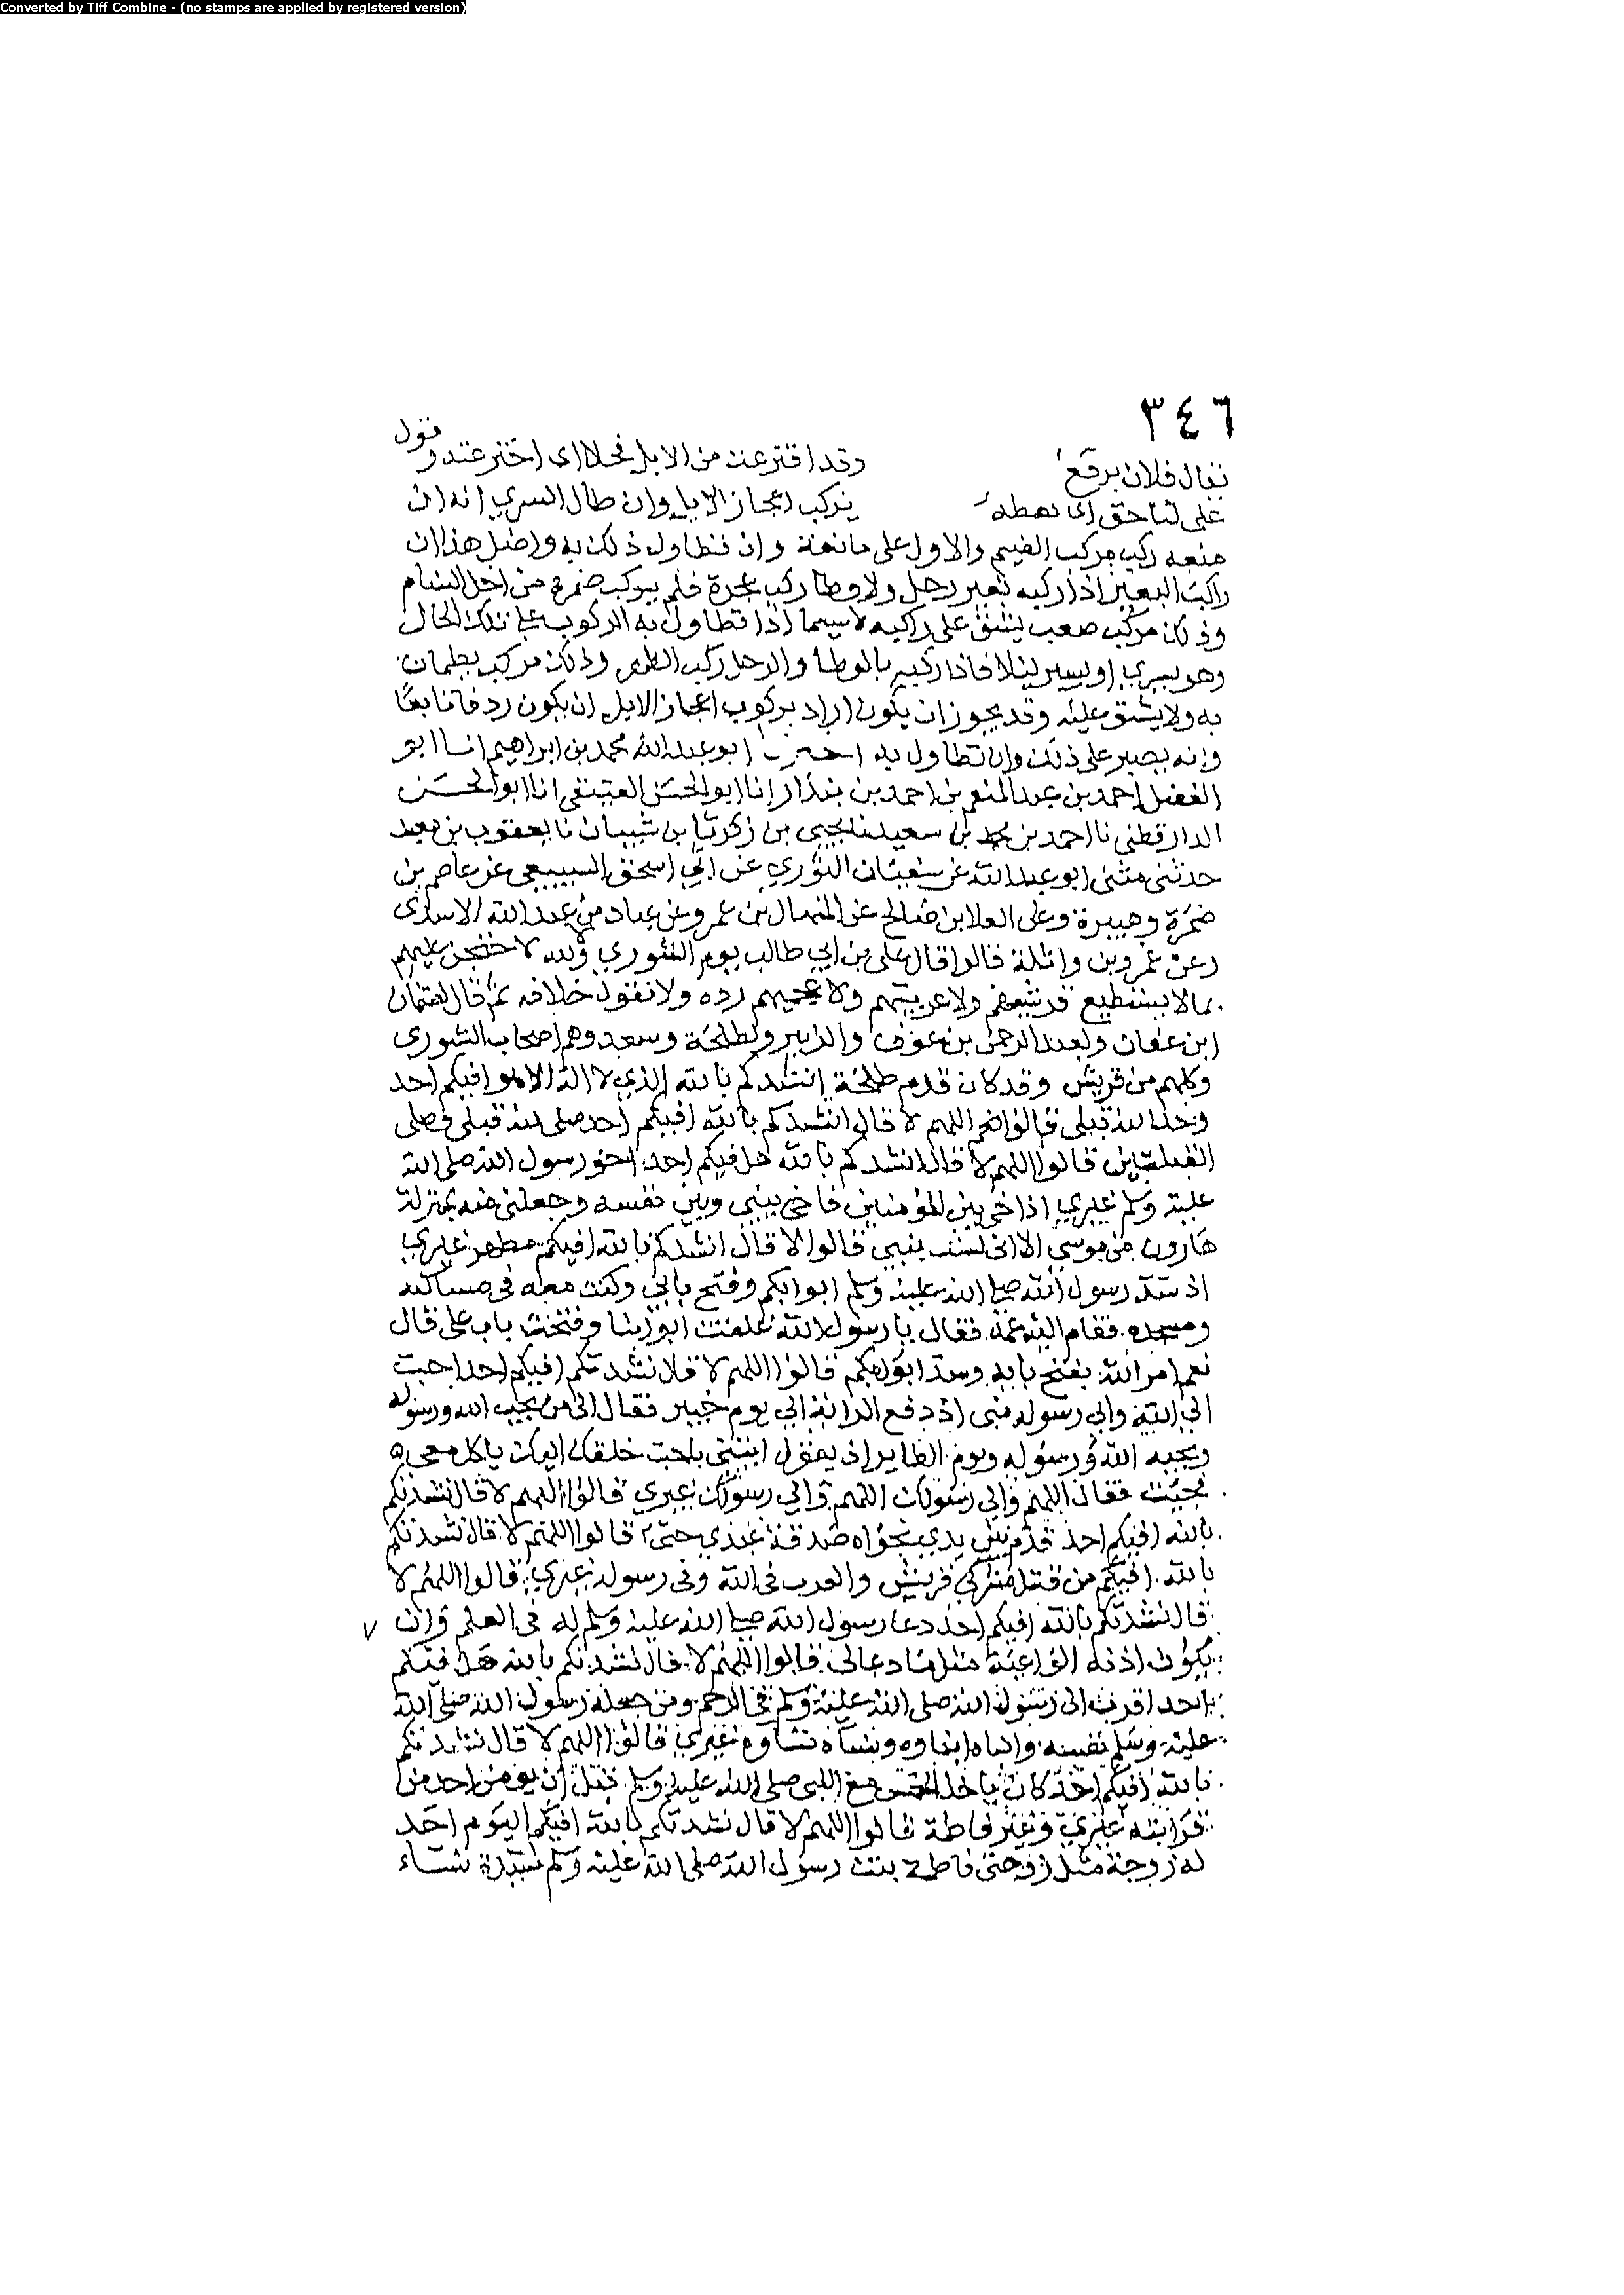 Converted by Tiff Combine - (no stamps are applied by registered version)
٣٤٦
يقال فلان برقع وقد اقترعت من الابل فحلا اى اخترعته وقول
على لنا حق ان نعطه نركب اعجاز الابل وان طال السري انه ان
منعه ركب مركب الضيم والاول على مانعه وان تطاول ذلك به واصل هذا ان
راكب البعير اذا ركبه بغير رحل ولا وطا ركب عجزه فلم يركب ضمرة من اجل السنام
وذلك مركب صعب يشق على راكبه لاسيما اذا تطاول به الركوب على تلك الحال
وهو يسري او يسير ليلا فاذا ركبه بالوطا والرحل ركب الظهر وذلك مركب يطمان
به ولا يشق عليه وقد يجوز ان يكون اراد بركوب اعجاز الابل ان يكون ردفا تابعا
وانه يصبر على ذلك وان تطاول به اخبرنا ابو عبد الله محمد بن ابراهيم انا ابو
الفضل احمد بن عبد المنعم بن احمد بن بندار انا ابو الحسن العتيقي انا ابو الحسن
الدارقطني نا احمد بن محمد بن سعيد نا يحيى بن زكريا بن شيبان نا يعقوب بن معبد
حدثني مثنى ابو عبد الله عن سفيان الثوري عن ابي اسحق السبيعي عن عاصم بن
ضمرة وهبيرة وعن العلا بن صالح عن المنهال بن عمرو عن عباد بن عبد الله الاسدى
وعن عمرو بن واثلة قالوا قال على بن ابي طالب يوم الشوري والله لاحتجن عليهم
بما لا يستطيع قرشيهم ولا عربيهم ولا عجميهم رده ولا نقول خلافه ثم قال لعثمان
ابن عفان ولعبد الرحمن بن عوف والزبير ولطلحة وسعد وهم اصحاب الشورى
وكلهم من قريش وقد كان قدم طلحة انشدكم بالله الذي لا اله الا هو افيكم احد
وحد الله قبلي قالوا اللهم لا قال انشدكم بالله افيكم احد صلى لله قبلي وصلى
القبلتين قالوا اللهم لا قال انشدكم بالله هل فيكم احد اخو رسول الله صلى الله
عليه وسلم غيري اذ اخى بين المؤمنين فاخى بيني وبين نفسه وجعلني منه بمنزلة
هارون من موسي الا اني لست بنبي قالوا لا قال انشدكم بالله افيكم مطهر غيري
اذ سد رسول الله صلى الله عليه وسلم ابوابكم وفتح بابي وكنت معه في مساكنه
ومسجده فقام اليه عمه فقال يا رسول الله غلقت ابوابنا وفتحت باب على قال
نعم امر الله بفتح بابه وسد ابوابكم قالوا اللهم لا قال نشدتكم افيكم احد احب
الى الله والي رسوله مني اذ دفع الراية الي يوم خيبر فقال الى من يحب الله ورسوله
ويحبه الله ورسوله ويوم الطاير اذ يقول ائتني باحب خلقك اليك ياكل معي
فجئت فقال اللهم والي رسولك اللهم والي رسولك غيري قالوا اللهم لا قال نشدتكم
بالله افيكم احد قدم بين يدي نجواه صدقة غيري حتى قالوا اللهم لا قال نشدتكم
بالله افيكم من قتل مشركي قريش والعرب في الله وفي رسوله غيري قالوا اللهم لا
قال نشدتكم بالله افيكم احد دعا رسول الله صلى الله عليه وسلم له في العلم وان ٧
يكون اذنه الواعية مثل ما دعا لي قالوا اللهم لا قال نشدتكم بالله هل فيكم
احد اقرب الى رسول الله صلى الله عليه وسلم في الرحم ومن جعله رسول الله صلى الله
عليه وسلم نفسه وابناه ابناوه ونساه نساوه غيري قالوا اللهم لا قال نشدتكم
بالله افيكم احد كان ياخذ الخمس مع النبي صلى الله عليه وسلم قبل ان يومن احد من
قرابته غيري وغير فاطمة قالوا اللهم لا قال نشدتكم بالله افيكم اليوم احد
له زوجة مثل زوجتي فاطمة بنت رسول الله صلى الله عليه وسلم سيدة نساء